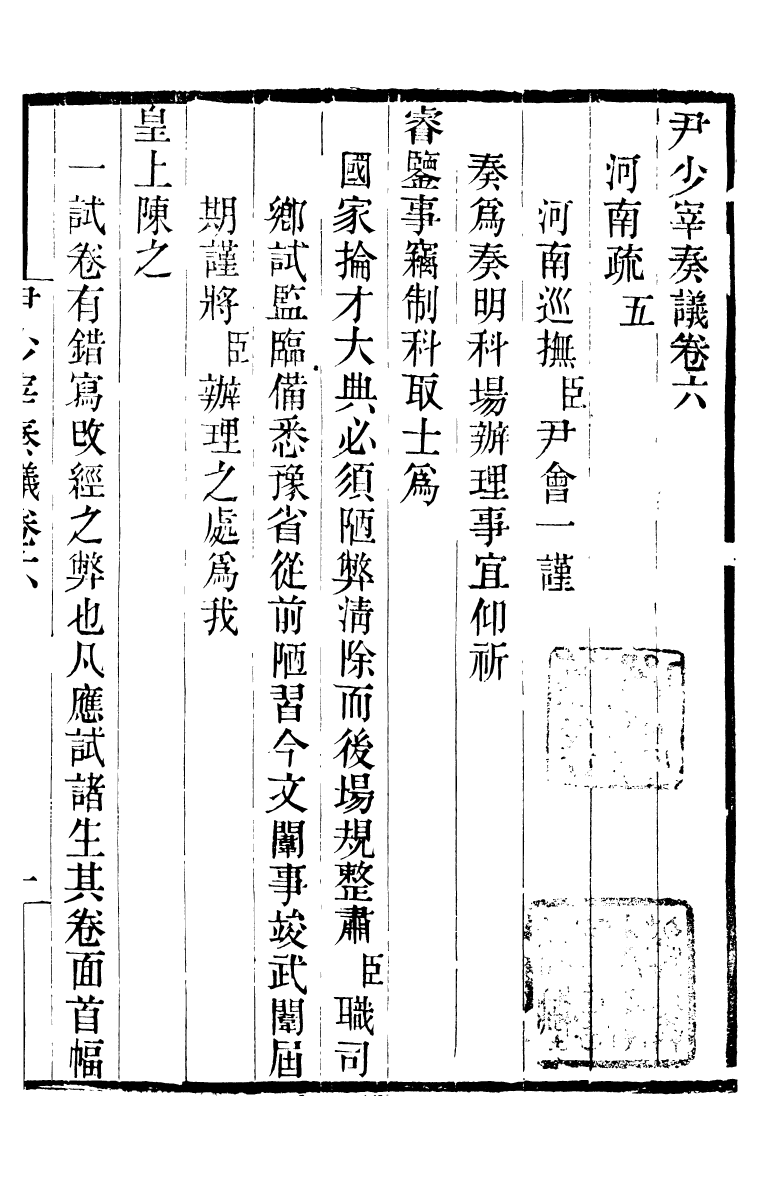 尹少宰奏議卷六
河南疏五
河南巡撫臣尹會一謹
奏爲奏明科場辦理事宜仰祈
睿鑒事竊制科取士爲
國家掄才大典必須陋弊清除而後場規整肅臣職司
鄉試監臨備悉豫省從前陋習今文闈事竣武闈屆
期謹將臣辦理之處爲我
皇上陳之
一試卷有錯寫改經之弊也凡應試諸生其卷面首幅
尹少宰奏議卷六
一